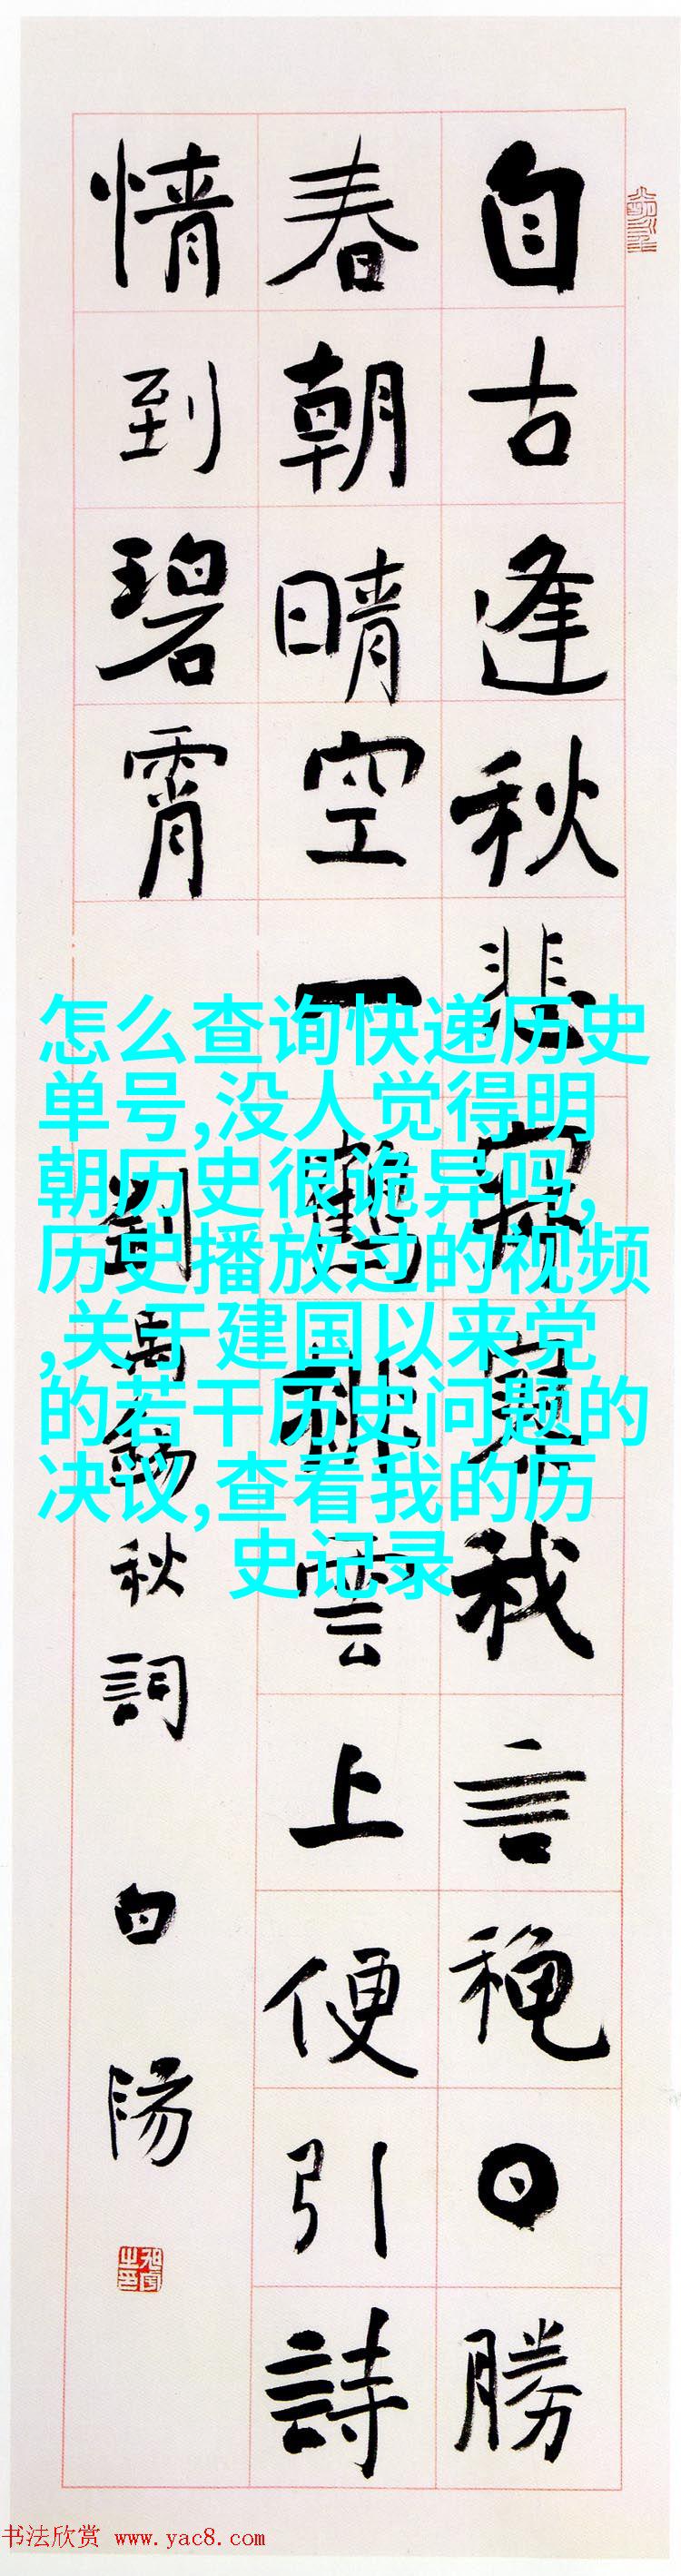 自古逢秋悲寂寞我言秋日勝
春朝晴空一鶴排雲上便引詩
情到碧霄
劉禹錫秋詞
白陽
怎么查询快递历史
单号,没人觉得明
朝历史很诡异吗,
历史播放过的视频
,关于建国以来党
的若干历史问题的
决议,查看我的历
史记录
书法欣赏 www.yac8.com